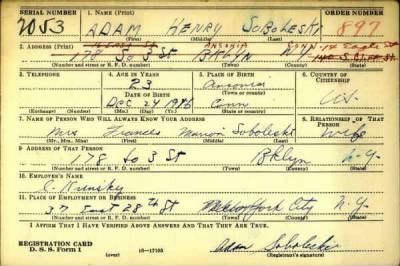 SERIAL NUMBER 1. NAME (Print) ORDER NUMBER
2053 ADAM HENRY SOBOLESKI 897
(First) (Middle) (Last)
2. ADDRESS (Print) ANSONIA CONN
178 S. 3 St BKLYN
(Number and street or R. F. D. number) (Town) (County) (State)
3. TELEPHONE 4. AGE IN YEARS 5. PLACE OF BIRTH 6. COUNTRY OF CITIZENSHIP
23 Ansonia
DATE OF BIRTH (Town or county)
Dec 24 Conn U.S.
(Exchange) (Number) (Mo.) (Day) (Yr.) (State or country)
7. NAME OF PERSON WHO WILL ALWAYS KNOW YOUR ADDRESS 8. RELATIONSHIP OF THAT PERSON
Mrs Frances Marion Soboleski Wife
(Mr., Mrs., Miss) (First) (Middle) (Last)
9. ADDRESS OF THAT PERSON
178 So 3 St Bklyn N-Y.
(Number and street or R. F. D. number) (Town) (County) (State)
10. EMPLOYER'S NAME
11. PLACE OF EMPLOYMENT OR BUSINESS
37 East 28th St City N.Y.
(Number and street or R. F. D. number) (Town) (County) (State)
I AFFIRM THAT I HAVE VERIFIED ABOVE ANSWERS AND THAT THEY ARE TRUE.
REGISTRATION CARD
D. S. S. Form 1 16—17105 Adam Soboleski